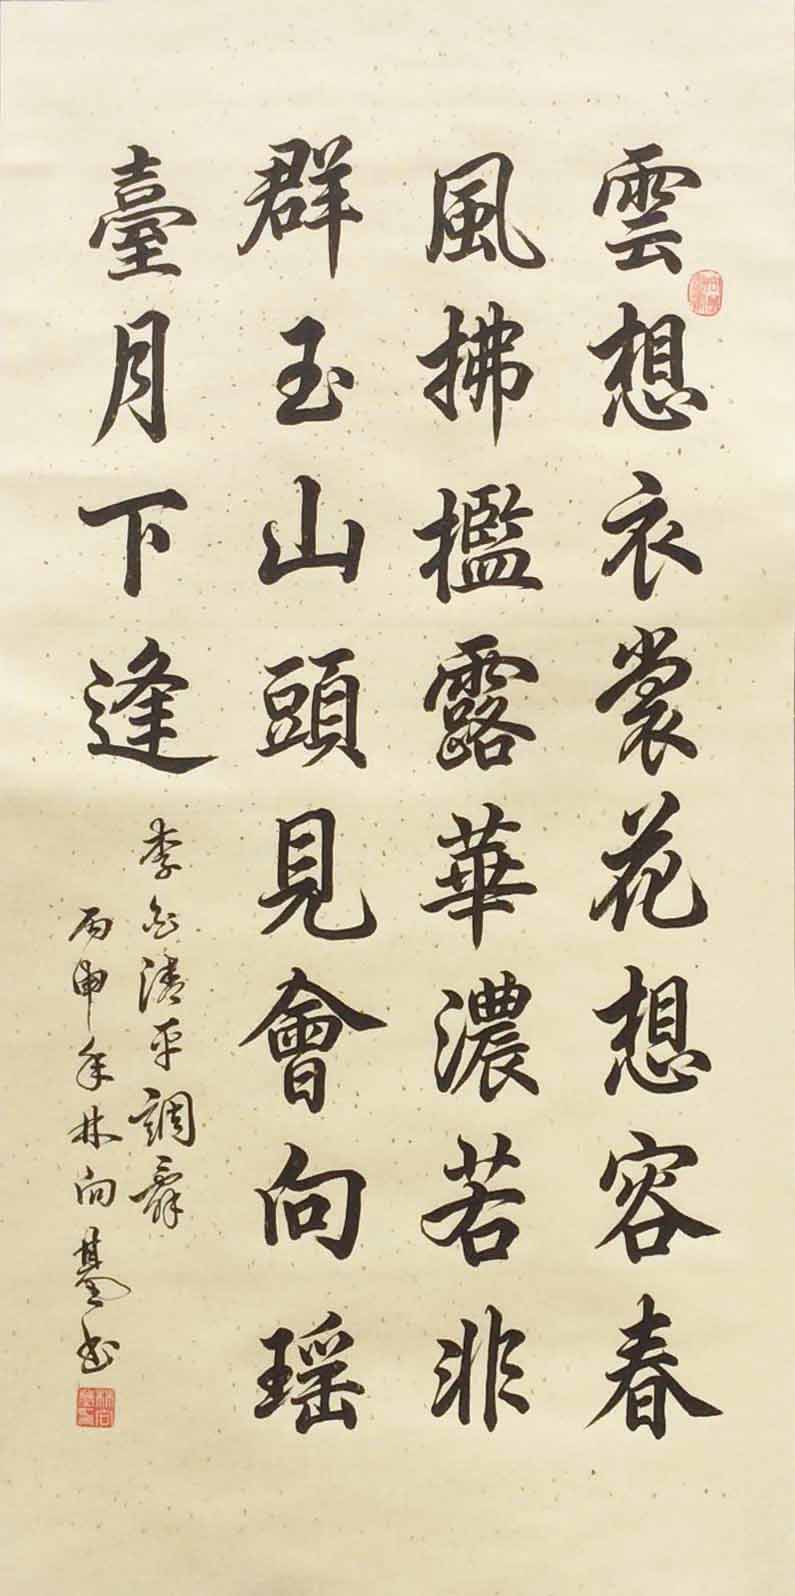 雲想衣裳花想容春
風拂檻露華濃若非
群玉山頭見會向瑶
臺月下逢
李白清平調辭
丙申年林向書